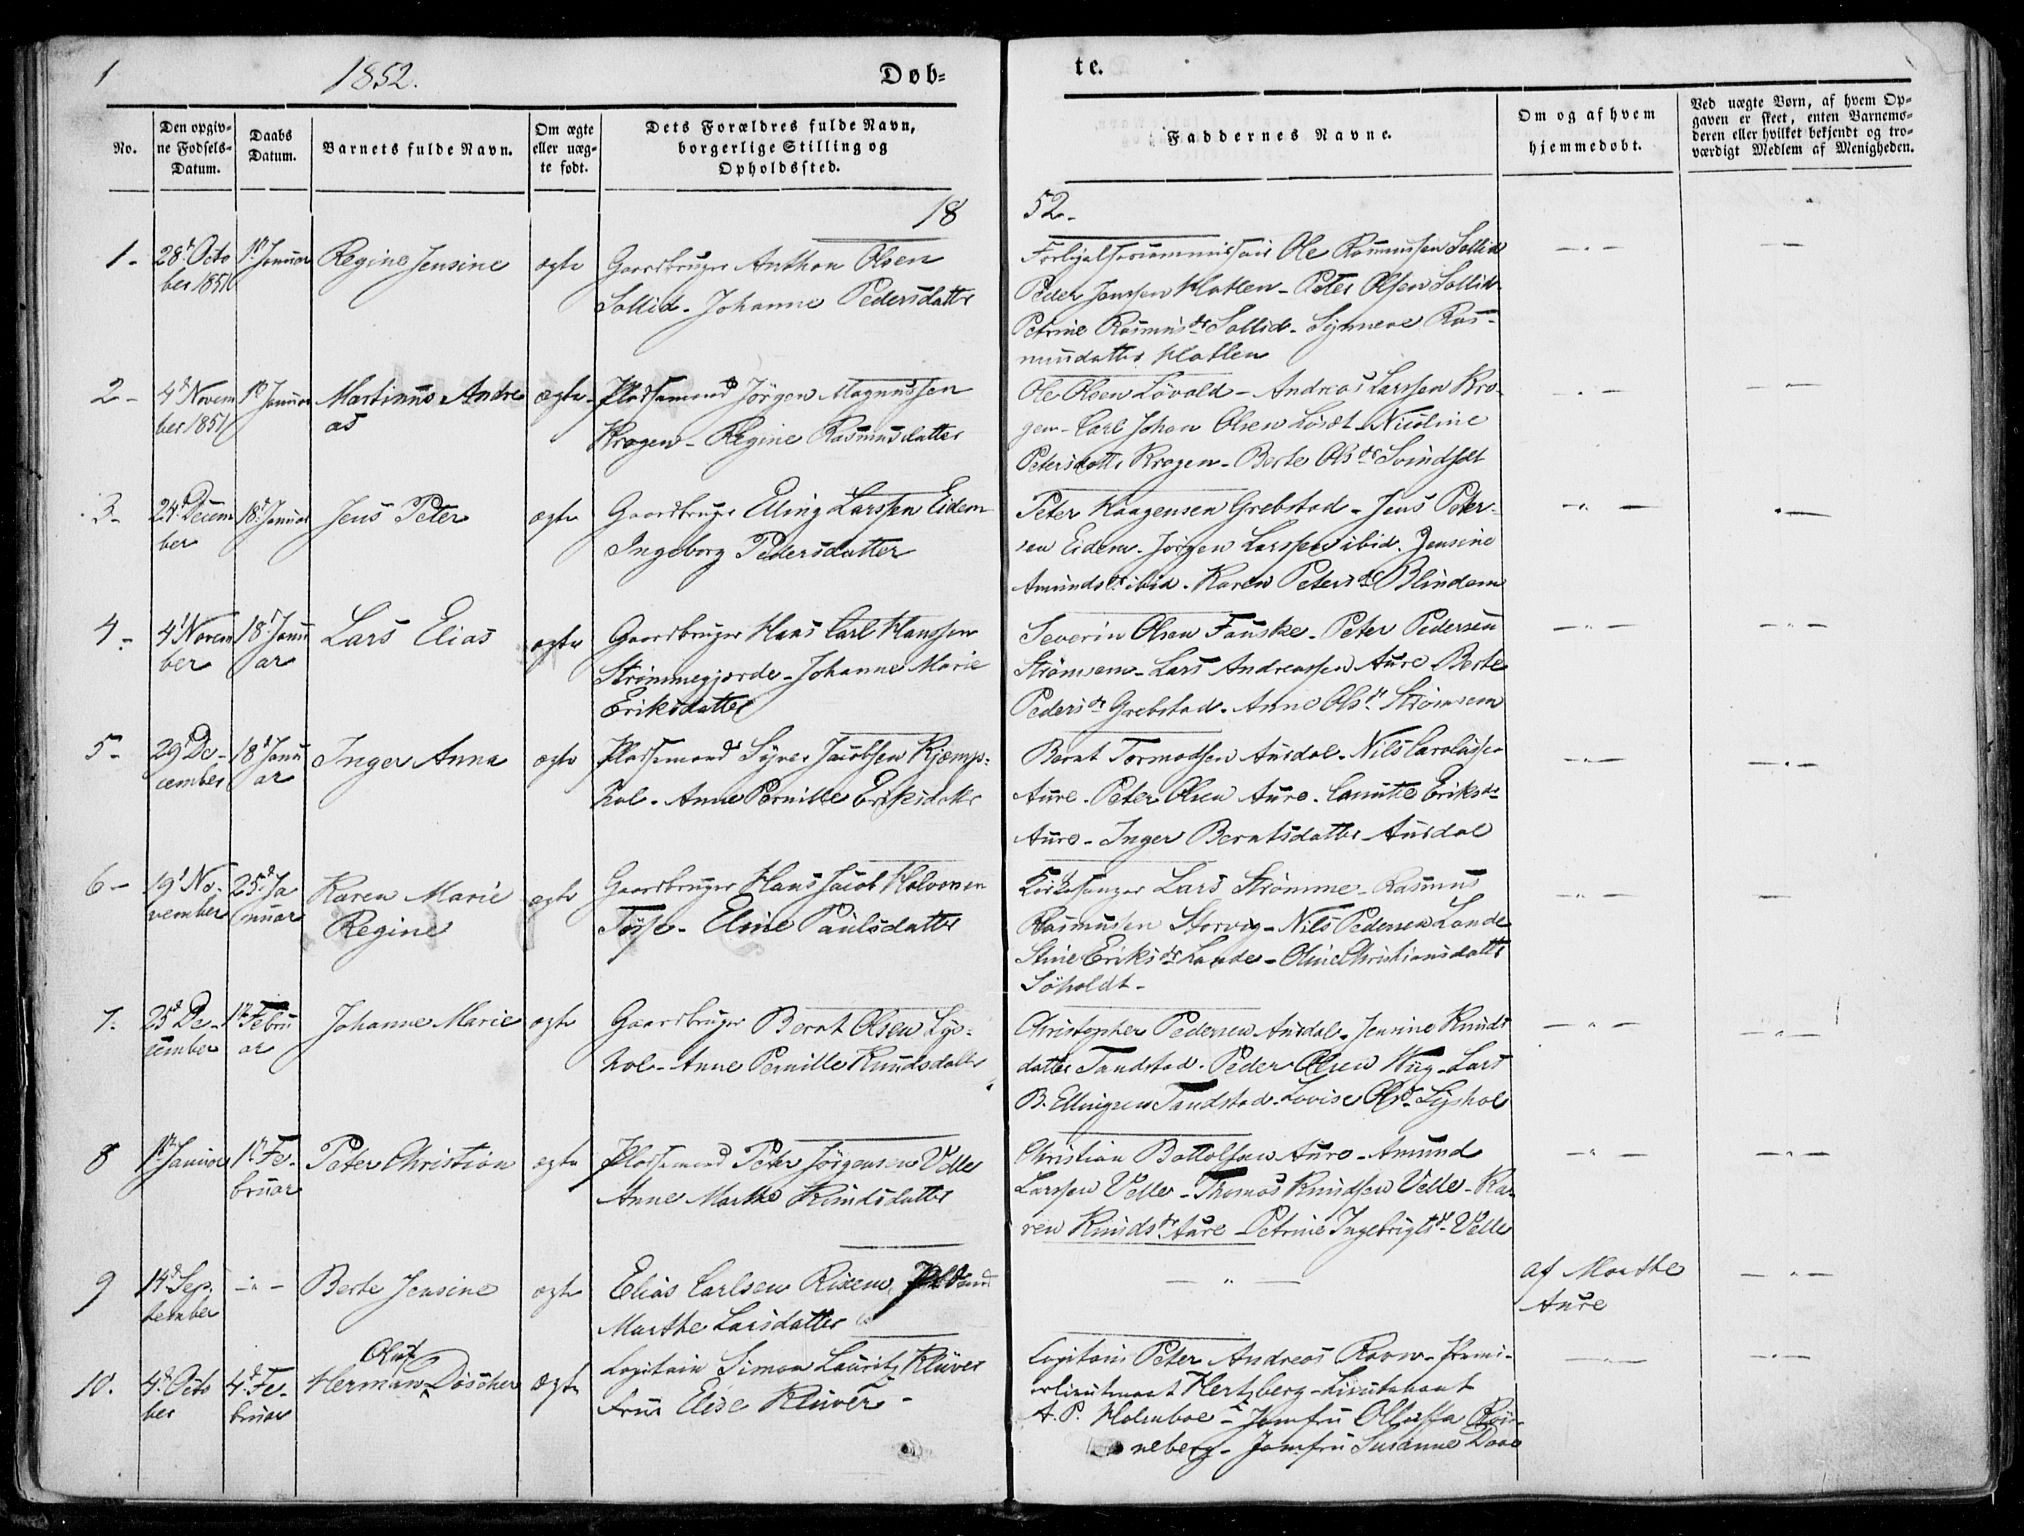 1 1852. Døb-
te.
No.
Den opgiv-
ne Fødsels-
Datum.
Daabs
Datum.
Barnets fulde Navn.
Om ægte
eller uæg-
te født.
Dets Forældres fulde Navn,
borgerlige Stilling og
Opholdssted.
Faddernes Navne.
Om og af hvem
hjemmedøbt.
Ved uægte Børn, af hvem Op-
gaven er skeet, enten Barnemo-
deren eller hvilket bekjendt og tro-
værdigt Medlem af Menigheden.
18
52.
1- 28d Octo
ber 1851
1ste Januar
Regine Jensine
ægte
Gaardbruger Anthon Olsen
Sollid - Johanne Pedersdatter
Forligelsescommissair Ole Rasmussen Sollid
Peder Janssen Hatlen - Peter Olsen Sollid
Petrine Rasmusdr Sollid - Synneve Ras-
musdatter Hatlen
2- 4d Novem
ber 1851
1ste Januar
Martinus Andre
as
ægte
Pladsemand Jörgen Magnussen
Kragen - Regine Rasmusdatter
Ole Olsen Lövold - Andreas Larssen Kra-
gen - Carl Johan Olsen - Nicoline
Petersdatter Kragen - Berte Olsdr
3- 24d Decem
ber
18d Januar
Jens Peter
ægte
Gaardbruger Elling Larssen Eidem
Ingeborg Pedersdatter
Peter Haagensen Grebstad - Jens Peter-
sen Eidem - Jörgen Larssen ibid. Jensine
Amundsdr ibid. Karen Petersdr Blindem
4- 4d Novem
ber
18d Janu
ar
Lars Elias
ægte
Gaardbruger Hans Carl Hanssen
Strömmegjerde - Johanne Marie
Eriksdatter
Severin Olsen Fauske - Peter Pedersen
Strömsem - Lars Andreassen Aure - Berte
Pedersdr Grebstad - Anne Olsdr Strömsem
5- 29d De-
cember
18d Janu
ar
Inger Anna
ægte
Pladsemand Syver Jacobsen Kjæmp-
hol - Anne Pernille Eriksdatter
Bernt Tormodsen Ausdal - Nils Carolussen
Aure - Peter Olsen Aure - Canutte Eriksdr
Aure - Inger Berntsdatter Ausdal
6- 19d No-
vember
25d Ja
nuar
Karen Marie
Regine
ægte
Gaardbruger Hans Jacob Halvorsen
Tösse - Eline Paulsdatter
Kirkesanger Lars Strömme - Rasmus
Rasmussen Storvig - Nils Pedersen Lande
Stine Eriksdr Lande - Oline Christiansdatter
Söholdt -
7- 25d De-
cember
1ste Febru
ar
Johanne Marie
ægte
Gaardbruger Bernt Olsen Lys-
hol - Anne Pernille Knudsdatter
Christopher Pedersen Ausdal - Jennine Knuds
datter Tandstad - Peder Olsen Wiig - Lars
B. Ellingsen Tandstad - Lovise Olsdr Lyshol
8 1ste Januar
1ste Fe-
bruar
Peter Christian
ægte
Pladsemand Peter Jörgensen Velle
Anne Marthe Knudsdatter
Christian Bottolfsen Aure - Amund
Larssen Velle - Thomas Knudsen Velle - Ka-
ren Knudsdr Aure - Petrine Ingebrigtsdr Velle
9 14d Sep-
tember
Berte Jensine
ægte
Elias Carlsen Risem,
Marthe Larsdatter
af Marthe
Aure
10. 4d Octo
ber
4d Fe-
bruar
Oluf
Herman Döscher
ægte
Capitain Simon Lauritz Klüver
Frue Elise Klüver -
Capitain Peter Andreas Ravn - Premi-
erlieutenant Hertzberg - Lieutenant
A. P. Holmboe - Jomfru Rön-
neberg - Jomfru Susanne Daae